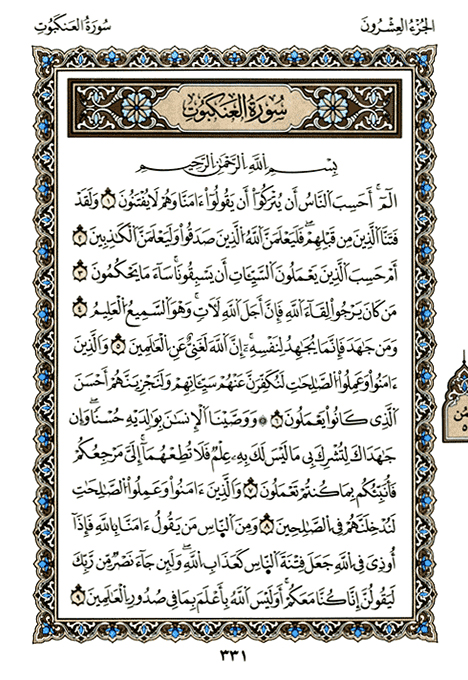 الجُزْءُ العِشْرُونَ
سُورَةُ العَنكَبُوتِ
سُورَةُ العَنكَبُوتِ
بِسْمِ اللَّهِ الرَّحْمَٰنِ الرَّحِيمِ
الٓمٓۚ أَحَسِبَ النَّاسُ أَن يُتْرَكُوٓا۟ أَن يَقُولُوٓا۟ ءَامَنَّا وَهُمْ لَا يُفْتَنُونَ ١ وَلَقَدْ
فَتَنَّا الَّذِينَ مِن قَبْلِهِمْۖ فَلَيَعْلَمَنَّ اللَّهُ الَّذِينَ صَدَقُوا۟ وَلَيَعْلَمَنَّ الْكَٰذِبِينَ ٢
أَمْ حَسِبَ الَّذِينَ يَعْمَلُونَ السَّيِّـَٔاتِ أَن يَسْبِقُونَاۚ سَآءَ مَا يَحْكُمُونَ ٣
مَن كَانَ يَرْجُوا۟ لِقَآءَ اللَّهِ فَإِنَّ أَجَلَ اللَّهِ لَـَٔاتٍۚ وَهُوَ السَّمِيعُ الْعَلِيمُ ٤
وَمَن جَٰهَدَ فَإِنَّمَا يُجَٰهِدُ لِنَفْسِهِۦٓۚ إِنَّ اللَّهَ لَغَنِيٌّ عَنِ الْعَٰلَمِينَ ٥ وَالَّذِينَ
ءَامَنُوا۟ وَعَمِلُوا۟ الصَّٰلِحَٰتِ لَنُكَفِّرَنَّ عَنْهُمْ سَيِّـَٔاتِهِمْ وَلَنَجْزِيَنَّهُمْ أَحْسَنَ
الَّذِى كَانُوا۟ يَعْمَلُونَ ٦ ۞ وَوَصَّيْنَا الْإِنسَٰنَ بِوَٰلِدَيْهِ حُسْنًاۖ وَإِن
جَٰهَدَاكَ لِتُشْرِكَ بِى مَا لَيْسَ لَكَ بِهِۦ عِلْمٌ فَلَا تُطِعْهُمَآۚ إِلَىَّ مَرْجِعُكُمْ
فَأُنَبِّئُكُم بِمَا كُنتُمْ تَعْمَلُونَ ٧ وَالَّذِينَ ءَامَنُوا۟ وَعَمِلُوا۟ الصَّٰلِحَٰتِ
لَنُدْخِلَنَّهُمْ فِى الصَّٰلِحِينَ ٨ وَمِنَ النَّاسِ مَن يَقُولُ ءَامَنَّا بِاللَّهِ فَإِذَآ
أُوذِىَ فِى اللَّهِ جَعَلَ فِتْنَةَ النَّاسِ كَعَذَابِ اللَّهِۖ وَلَئِن جَآءَ نَصْرٌ مِّن رَّبِّكَ
لَيَقُولُنَّ إِنَّا كُنَّا مَعَكُمْۚ أَوَلَيْسَ اللَّهُ بِأَعْلَمَ بِمَا فِى صُدُورِ الْعَٰلَمِينَ ٩
٣٣١